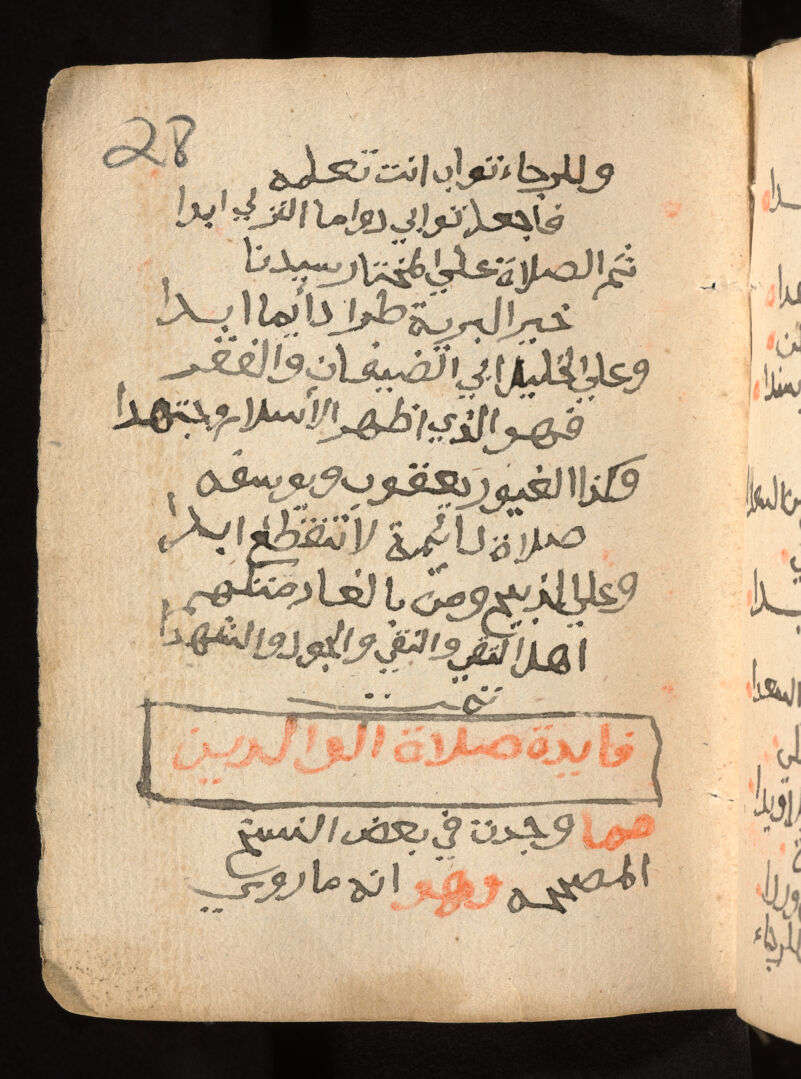 28
وللرجاء ثواب انت تعلمه
فاجعل ثوابي دواما الذلي ابدا
ثم الصلاة علي المختار سيدنا
خير البرية طرا دائما ابدا
وعلي الخليل ابي الضيفان والفقر
فهو الذي اظهر الأسلام مجتهدا
وكذا الغيور يعقوب ويوسفه
صلاة دائمة لا تنقطع ابدا
وعلي الذبيح ومن بالغار
اهل التقي والنقي والجود والشهدا
تمت
فايدة صلاة الوالدين
مما وجدت في بعض النسخ
المصححه وهو انه ما روي